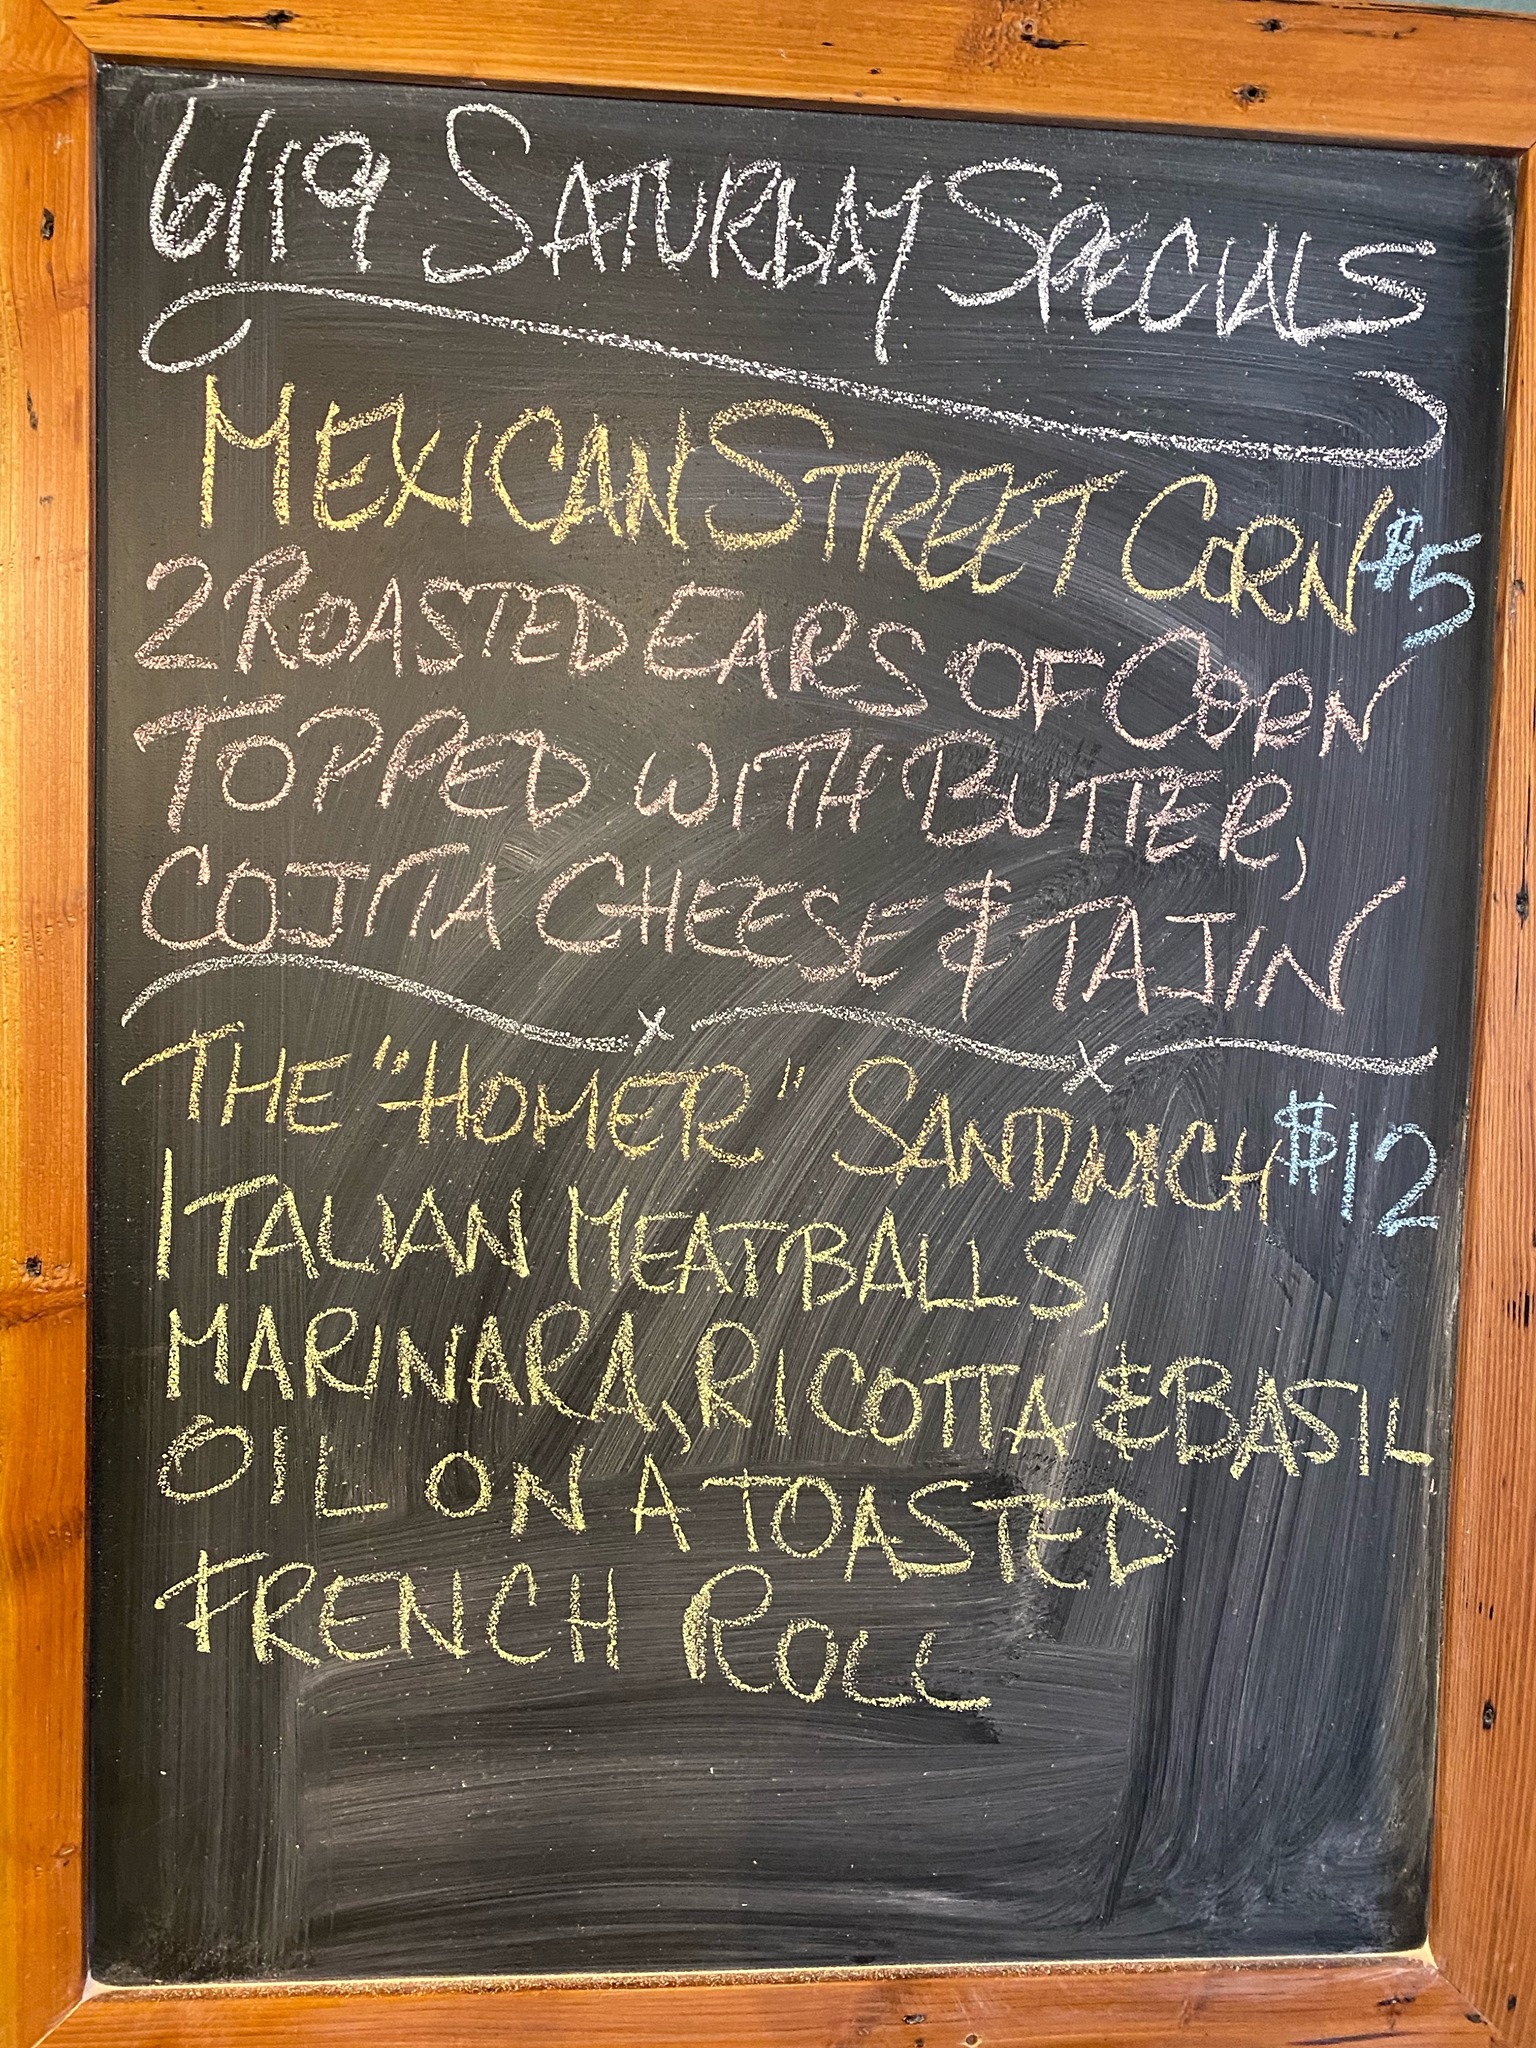 6/19 SATURDAY SPECIALS
MEXICAN STREET CORN $5
2 ROASTED EARS OF CORN
TOPPED WITH BUTTER,
COJITA CHEESE & TAJIN
THE "HOMER" SANDWICH $12
ITALIAN MEATBALLS,
MARINARA, RICOTTA & BASIL
OIL ON A TOASTED
FRENCH ROLL